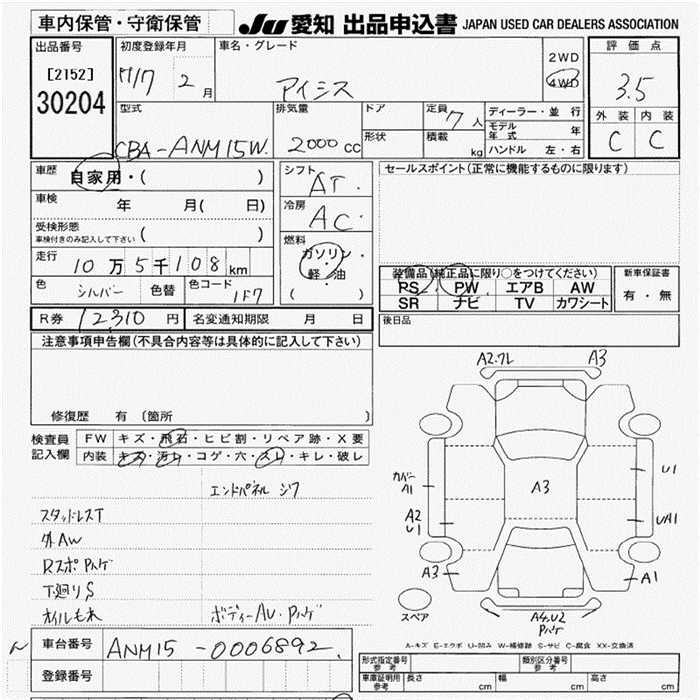 車内保管・守衛保管
JU 愛知 出品申込書 JAPAN USED CAR DEALERS ASSOCIATION
出品番号
[2152]
30204
初度登録年月
H17 2月
車名・グレード
アイシス
2WD
4WD
評価点
3.5
外装 内装
C C
型式
CBA-ANM15W.
排気量
2000cc
ドア
形状
定員 7人
積載 kg
ディーラー・並行
モデル年式 年
ハンドル 左・右
車歴
自家用・( )
車検 年 月( 日)
受検形態
車検付きのみ記入して下さい ( )
走行
10万5千108km
色 シルバー 色替 色コード 1F7
シフト
AT.
冷房
AC.
燃料
ガソリン・
軽・油
( )
セールスポイント(正常に機能するものに限ります)
装備品(純正品に限り○をつけてください)
PS PW エアB AW
SR ナビ TV カワシート
新車保証書
有・無
R券 12,310円 名変通知期限 月 日
後日品
注意事項申告欄(不具合内容等は具体的に記入して下さい)
修復歴 有(箇所 )
検査員
記入欄
FW キズ・飛石・ヒビ割・リペア跡・X要
内装 キズ・汚れ・コゲ・穴・スレ・キレ・破レ
エンドパネル ジワ
スタッドレスT
外AW
Rスポ Pハゲ
下廻りS
オイルモれ
ボディーAU・Pハゲ
A2.ワレ
A3
カバー
A1
A2
U1
A3
U1
UA1
A3
A1
スペア
A4.U2
Pハゲ
A-キズ E-エクボ U-凹み W-補修跡 S-サビ C-腐食 XX-交換済
車台番号 ANM15-0006892.
登録番号
形式指定番号
参考
類別区分番号
参考
車庫証明用
参考
長さ cm
幅 cm
高さ cm